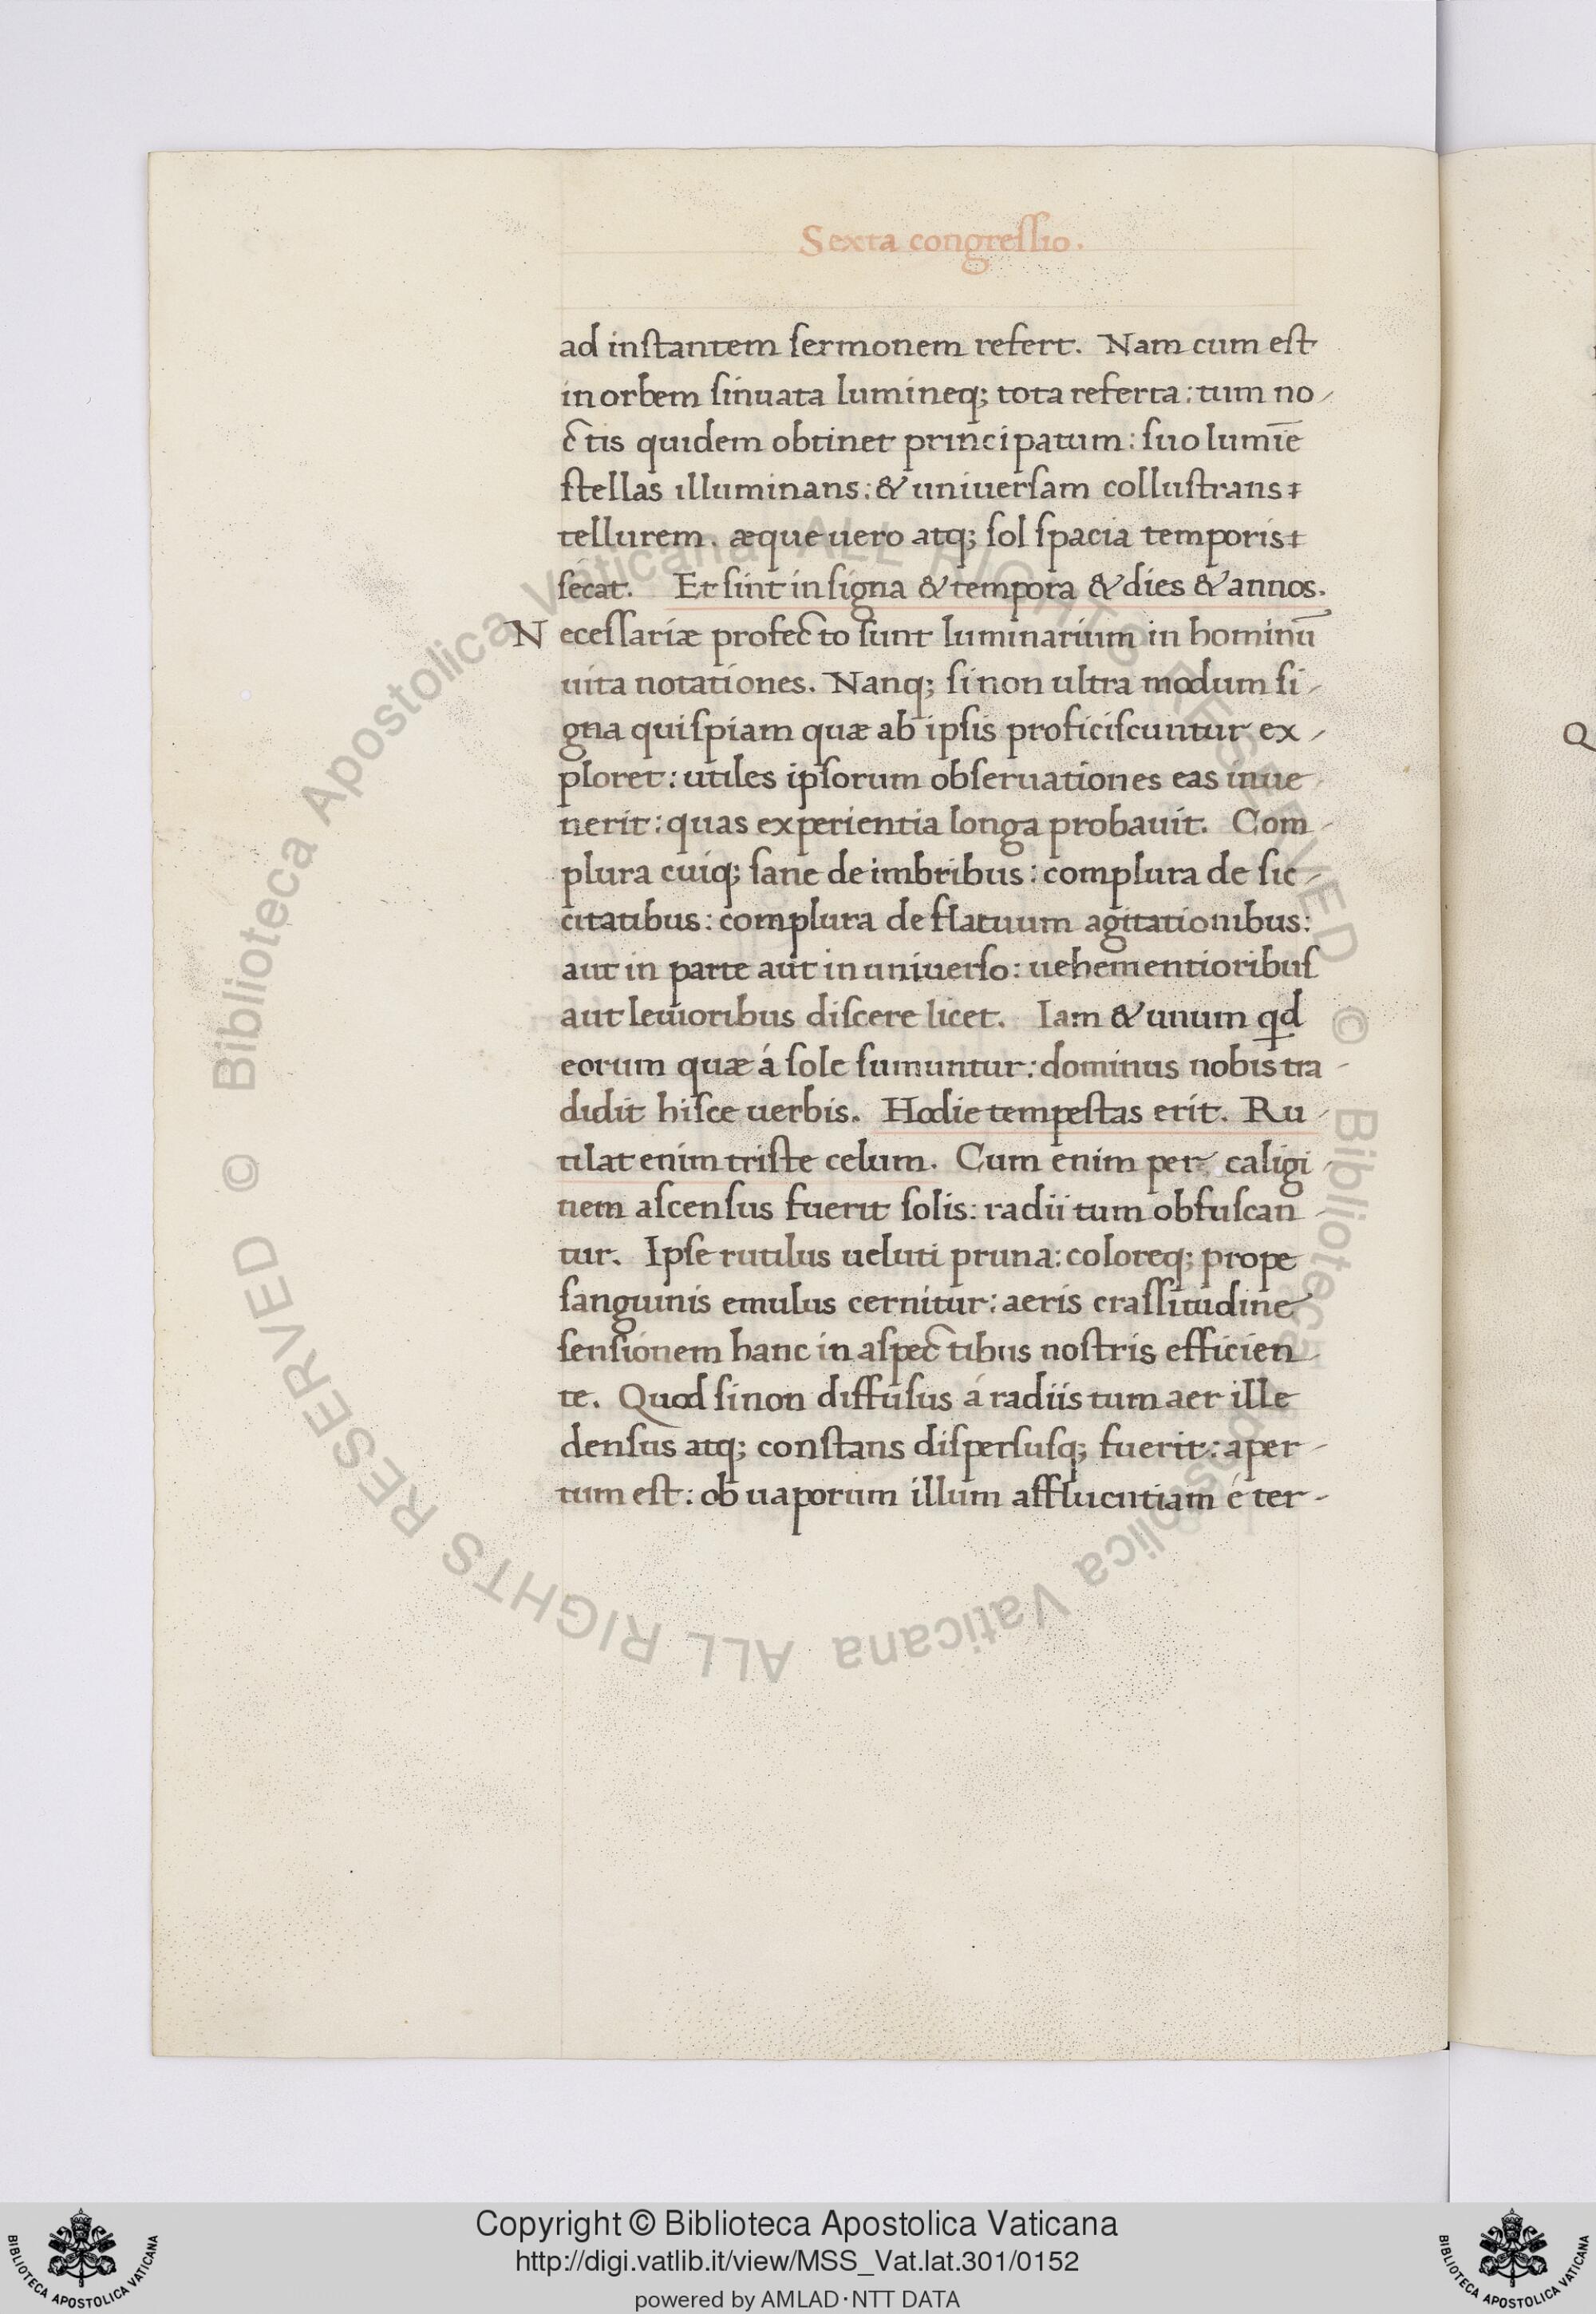 Sexta congreſſio.
ad inſtantem ſermonem refert. Nam cum eſt
in orbem ſinuata lumineq; tota referta: tum no-
ctis quidem obtinet principatum: ſuo lumīe
ſtellas illuminans: & uniuerſam colluſtrans
tellurem. æque uero atq; ſol ſpacia temporis
ſecat. Et ſint in ſigna & tempora & dies & annos.
Neceſſariæ profecto ſunt luminarium in hominū
uita notationes. Nanq; ſi non ultra modum ſi-
gna quiſpiam quæ ab ipſis proficiſcuntur ex-
ploret: utiles ipſorum obſeruationes eas inue
nerit: quas experientia longa probauit. Com-
plura cuiq; ſane de imbribus: complura de ſic-
citatibus: complura de flatuum agitationibus:
aut in parte aut in uniuerſo: uehementioribuſ
aut leuioribus diſcere licet. Iam & unum qd
eorum quæ á ſole ſumuntur: dominus nobis tra-
didit hiſce uerbis. Hodie tempeſtas erit. Ru-
tilat enim triſte celum. Cum enim per caligi-
nem aſcenſus fuerit ſolis: radii tum obfuſcan-
tur. Ipſe rutilus ueluti pruna: coloreq; prope
ſanguinis emulus cernitur: aeris craſſitudine
ſenſionem hanc in aſpectibus noſtris efficien-
te. Quod ſi non diffuſus á radiis tum aer ille
denſus atq; conſtans diſperſuſq; fuerit: aper-
tum eſt: ob uaporum illum affluentiam é ter-
Q
© Biblioteca Apostolica Vaticana ALL RIGHTS RESERVED
© Biblioteca Apostolica Vaticana ALL RIGHTS RESERVED
BIBLIOTECA APOSTOLICA VATICANA
Copyright © Biblioteca Apostolica Vaticana
http://digi.vatlib.it/view/MSS_Vat.lat.301/0152
powered by AMLAD·NTT DATA
BIBLIOTECA APOSTOLICA VATICANA